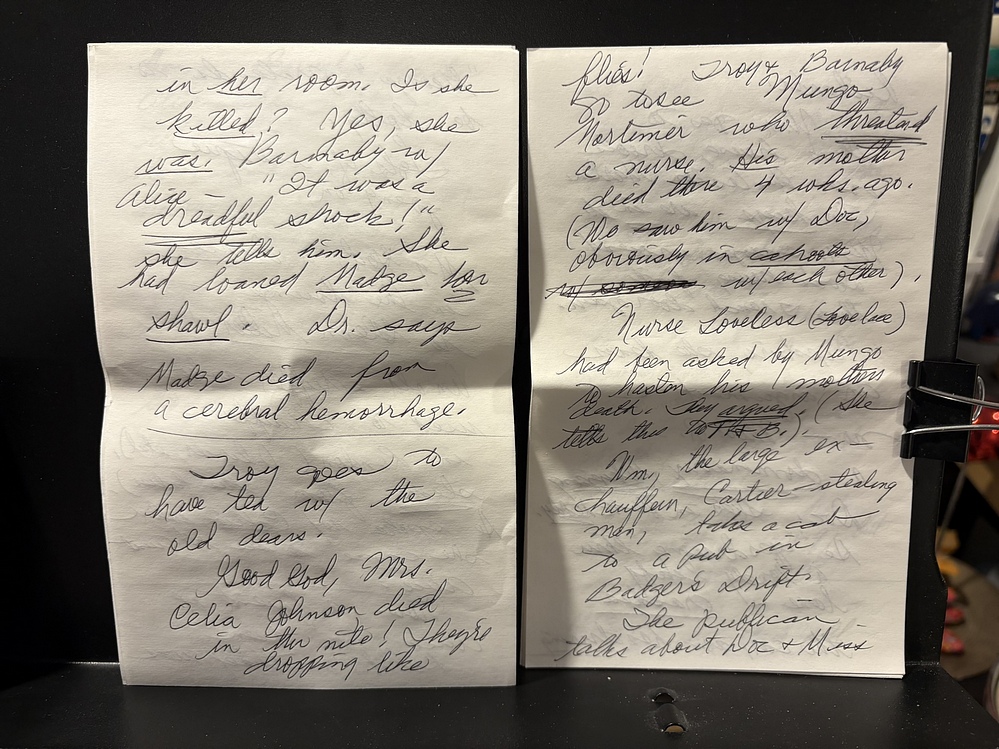 in her room. Is she
killed? Yes, she
was. Barnaby w/
Alice – "It was a
dreadful shock!"
she tells him. She
had loaned Madge her
shawl. Dr. says
Madge died from
a cerebral hemorrhage.
Troy goes to
have tea w/ the
old dears.
Good God, Mrs.
Celia Johnson died
in the nite! They're
dropping like
flies! Troy & Barnaby
go to see Mungo
Mortimer who threatened
a nurse. His mother
died there 4 wks. ago.
(We saw him w/ Doc,
obviously in cahoots
w/ each other).
Nurse Loveless (Lovelace)
had been asked by Mungo
to hasten his mothers
death. They argued. (She
tells this to T & B.)
Wm, the large ex-
chauffeur, Cartier-stealing
man, takes a cab
to a pub in
Badger's Drift.
The publican
talks about Doc & Miss